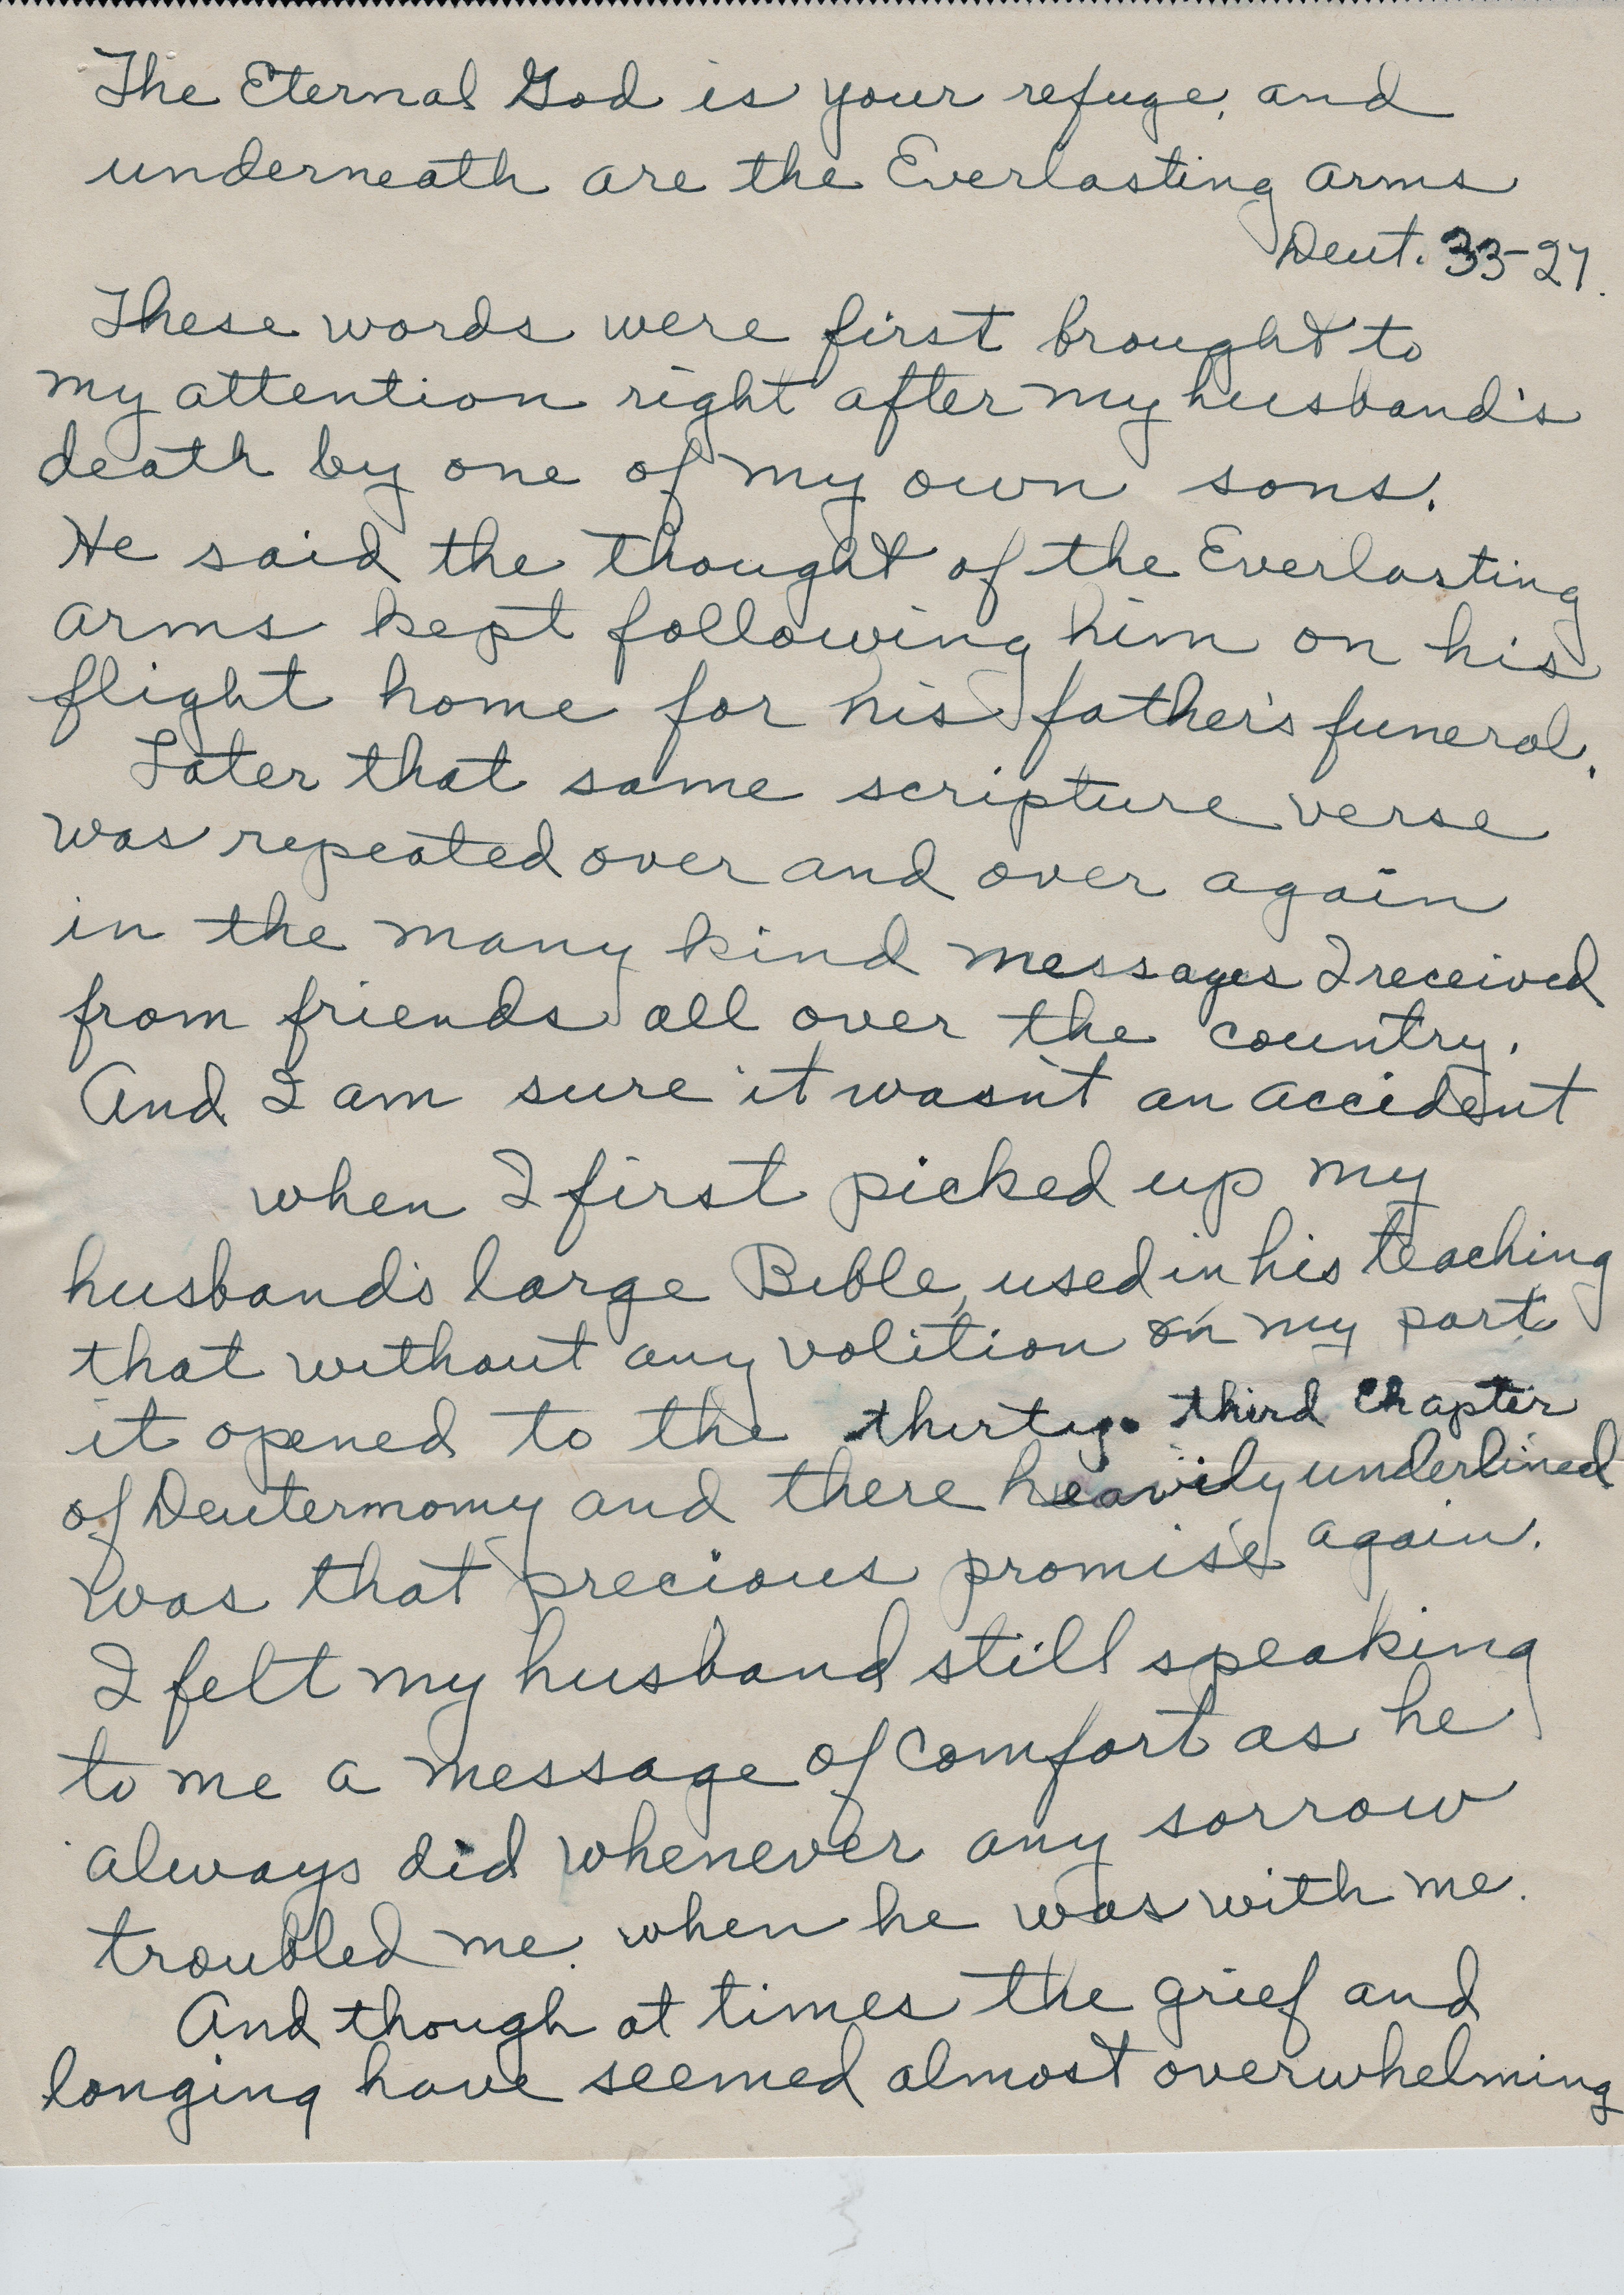 The Eternal God is your refuge, and
underneath are the Everlasting arms
Deut. 33-27.
These words were first brought to
my attention right after my husband's
death by one of my own sons.
He said the thought of the Everlasting
arms kept following him on his
flight home for his father's funeral.
Later that same scripture verse
was repeated over and over again
in the many kind messages I received
from friends all over the country.
And I am sure it wasn't an accident
when I first picked up my
husband's large Bible, used in his teaching
that without any volition on my part
it opened to the thirty-third Chapter
of Deutermomy and there heavily underlined
was that precious promise again.
I felt my husband still speaking
to me a message of comfort as he
always did whenever any sorrow
troubled me when he was with me.
And though at times the grief and
longing have seemed almost overwhelming
3